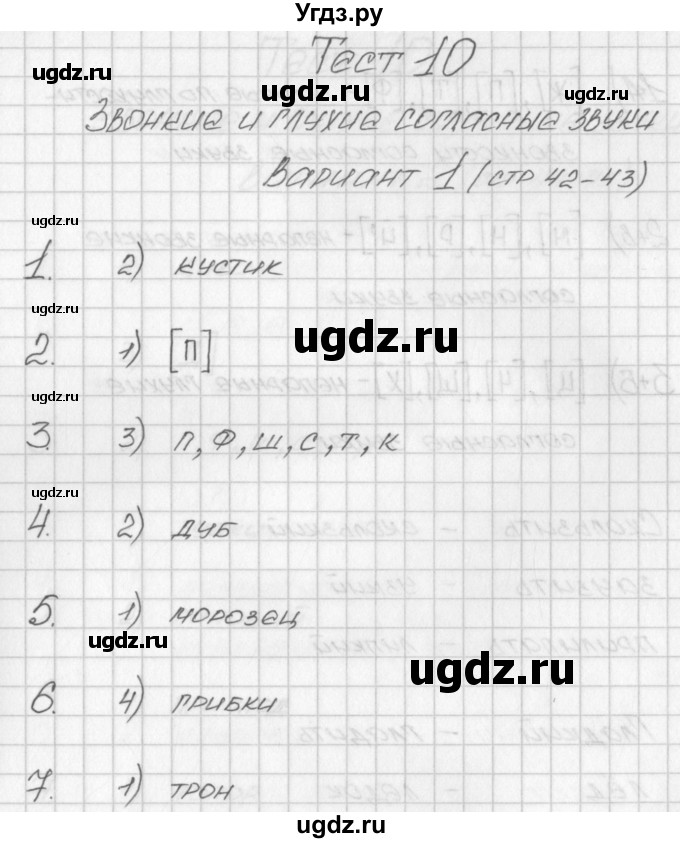 Угдз.ру
Тест 10
ugdz.ru ugdz.ru
ugdz.ru
Звонкие и глухие согласные звуки
Вариант 1 (стр 42-43)
ugdz.ru
1. 2) кустик
ugdz.ru
ugdz.ru
2. 1) [п]
ugdz.ru
3. 3) п, ф, ш, с, т, к
ugdz.ru
4. 2) дуб
ugdz.ru
5. 1) морозец
ugdz.ru
ugdz.ru
6. 4) грибки
ugdz.ru
7. 1) трон
ugdz.ru
ugdz.ru